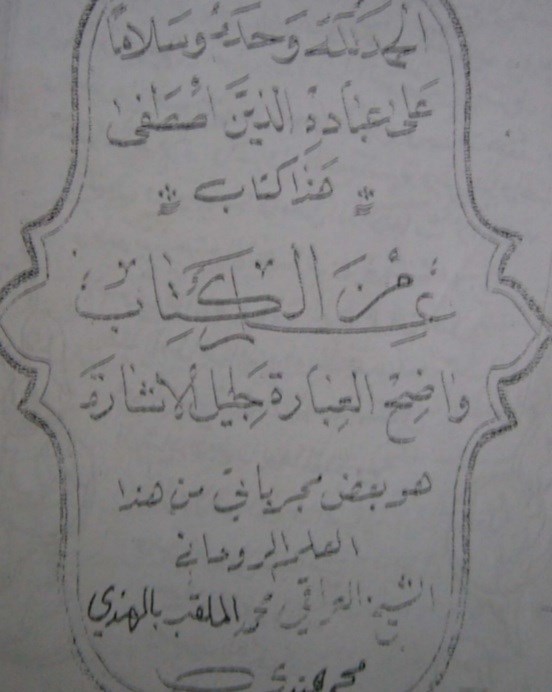 الحمد لله وحده وسلاما
على عباده الذين اصطفى
هذا كتاب
من الكتاب
واضح العبارة جليل الاشارة
هو بعض مجرباتي من هذا
العلم الروحاني
الشيخ العراقي محمد الملقب بالهندي
محمد هندي